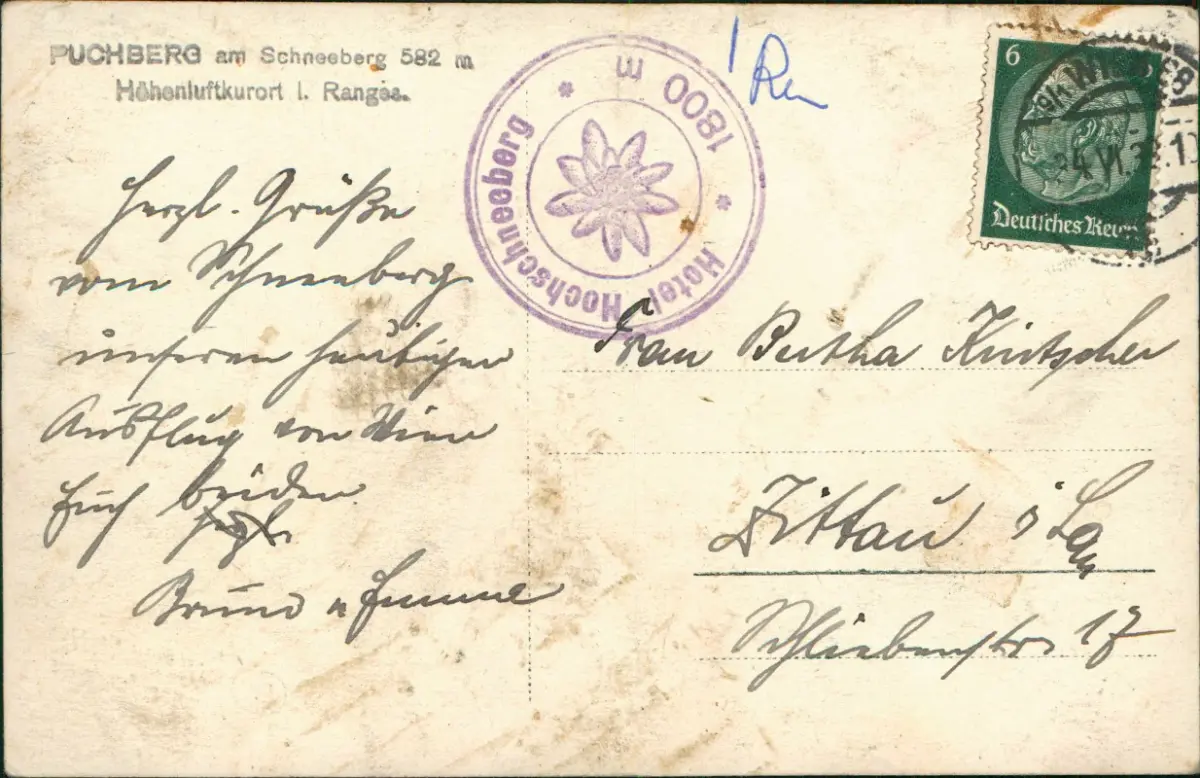 PUCHBERG am Schneeberg 582 m
Höhenluftkurort I. Ranges.
Hotel Hochschneeberg
1800 m
6
Deutsches Reich
24.VI.38.1
Herzl. Grüße
vom Schneeberg
unseren heutigen
Ausflug von Wien
Euch beiden
herzl.
Bruno u Emmel
Frau Bertha Kintscher
Zittau i Sa
Schliebenstr. 17